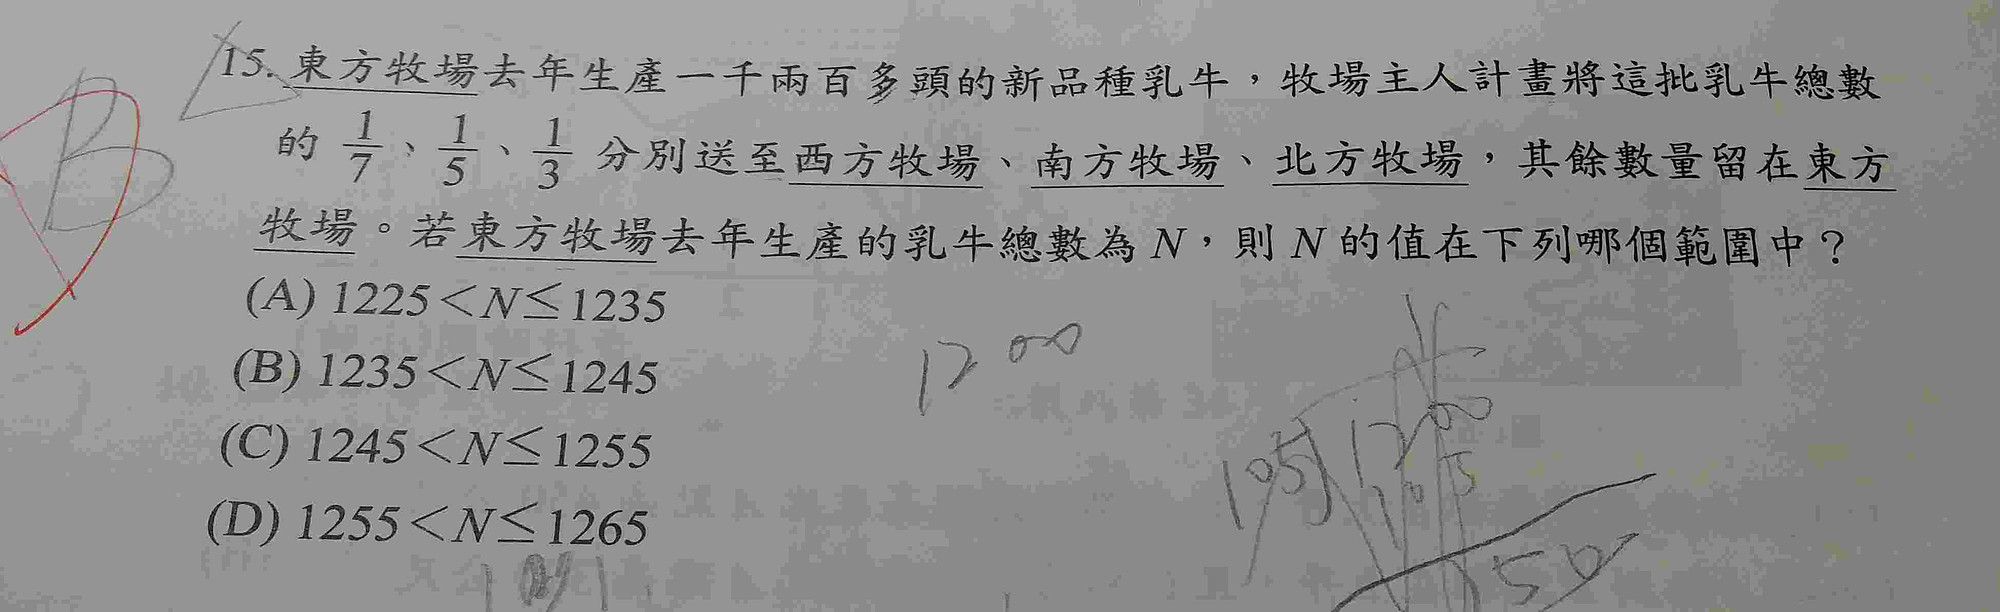 B
15. 東方牧場去年生產一千兩百多頭的新品種乳牛，牧場主人計畫將這批乳牛總數
的 1/7、1/5、1/3 分別送至西方牧場、南方牧場、北方牧場，其餘數量留在東方
牧場。若東方牧場去年生產的乳牛總數為 N，則 N 的值在下列哪個範圍中？
(A) 1225＜N≤1235
(B) 1235＜N≤1245
(C) 1245＜N≤1255
(D) 1255＜N≤1265
1200
105 1200
105
150